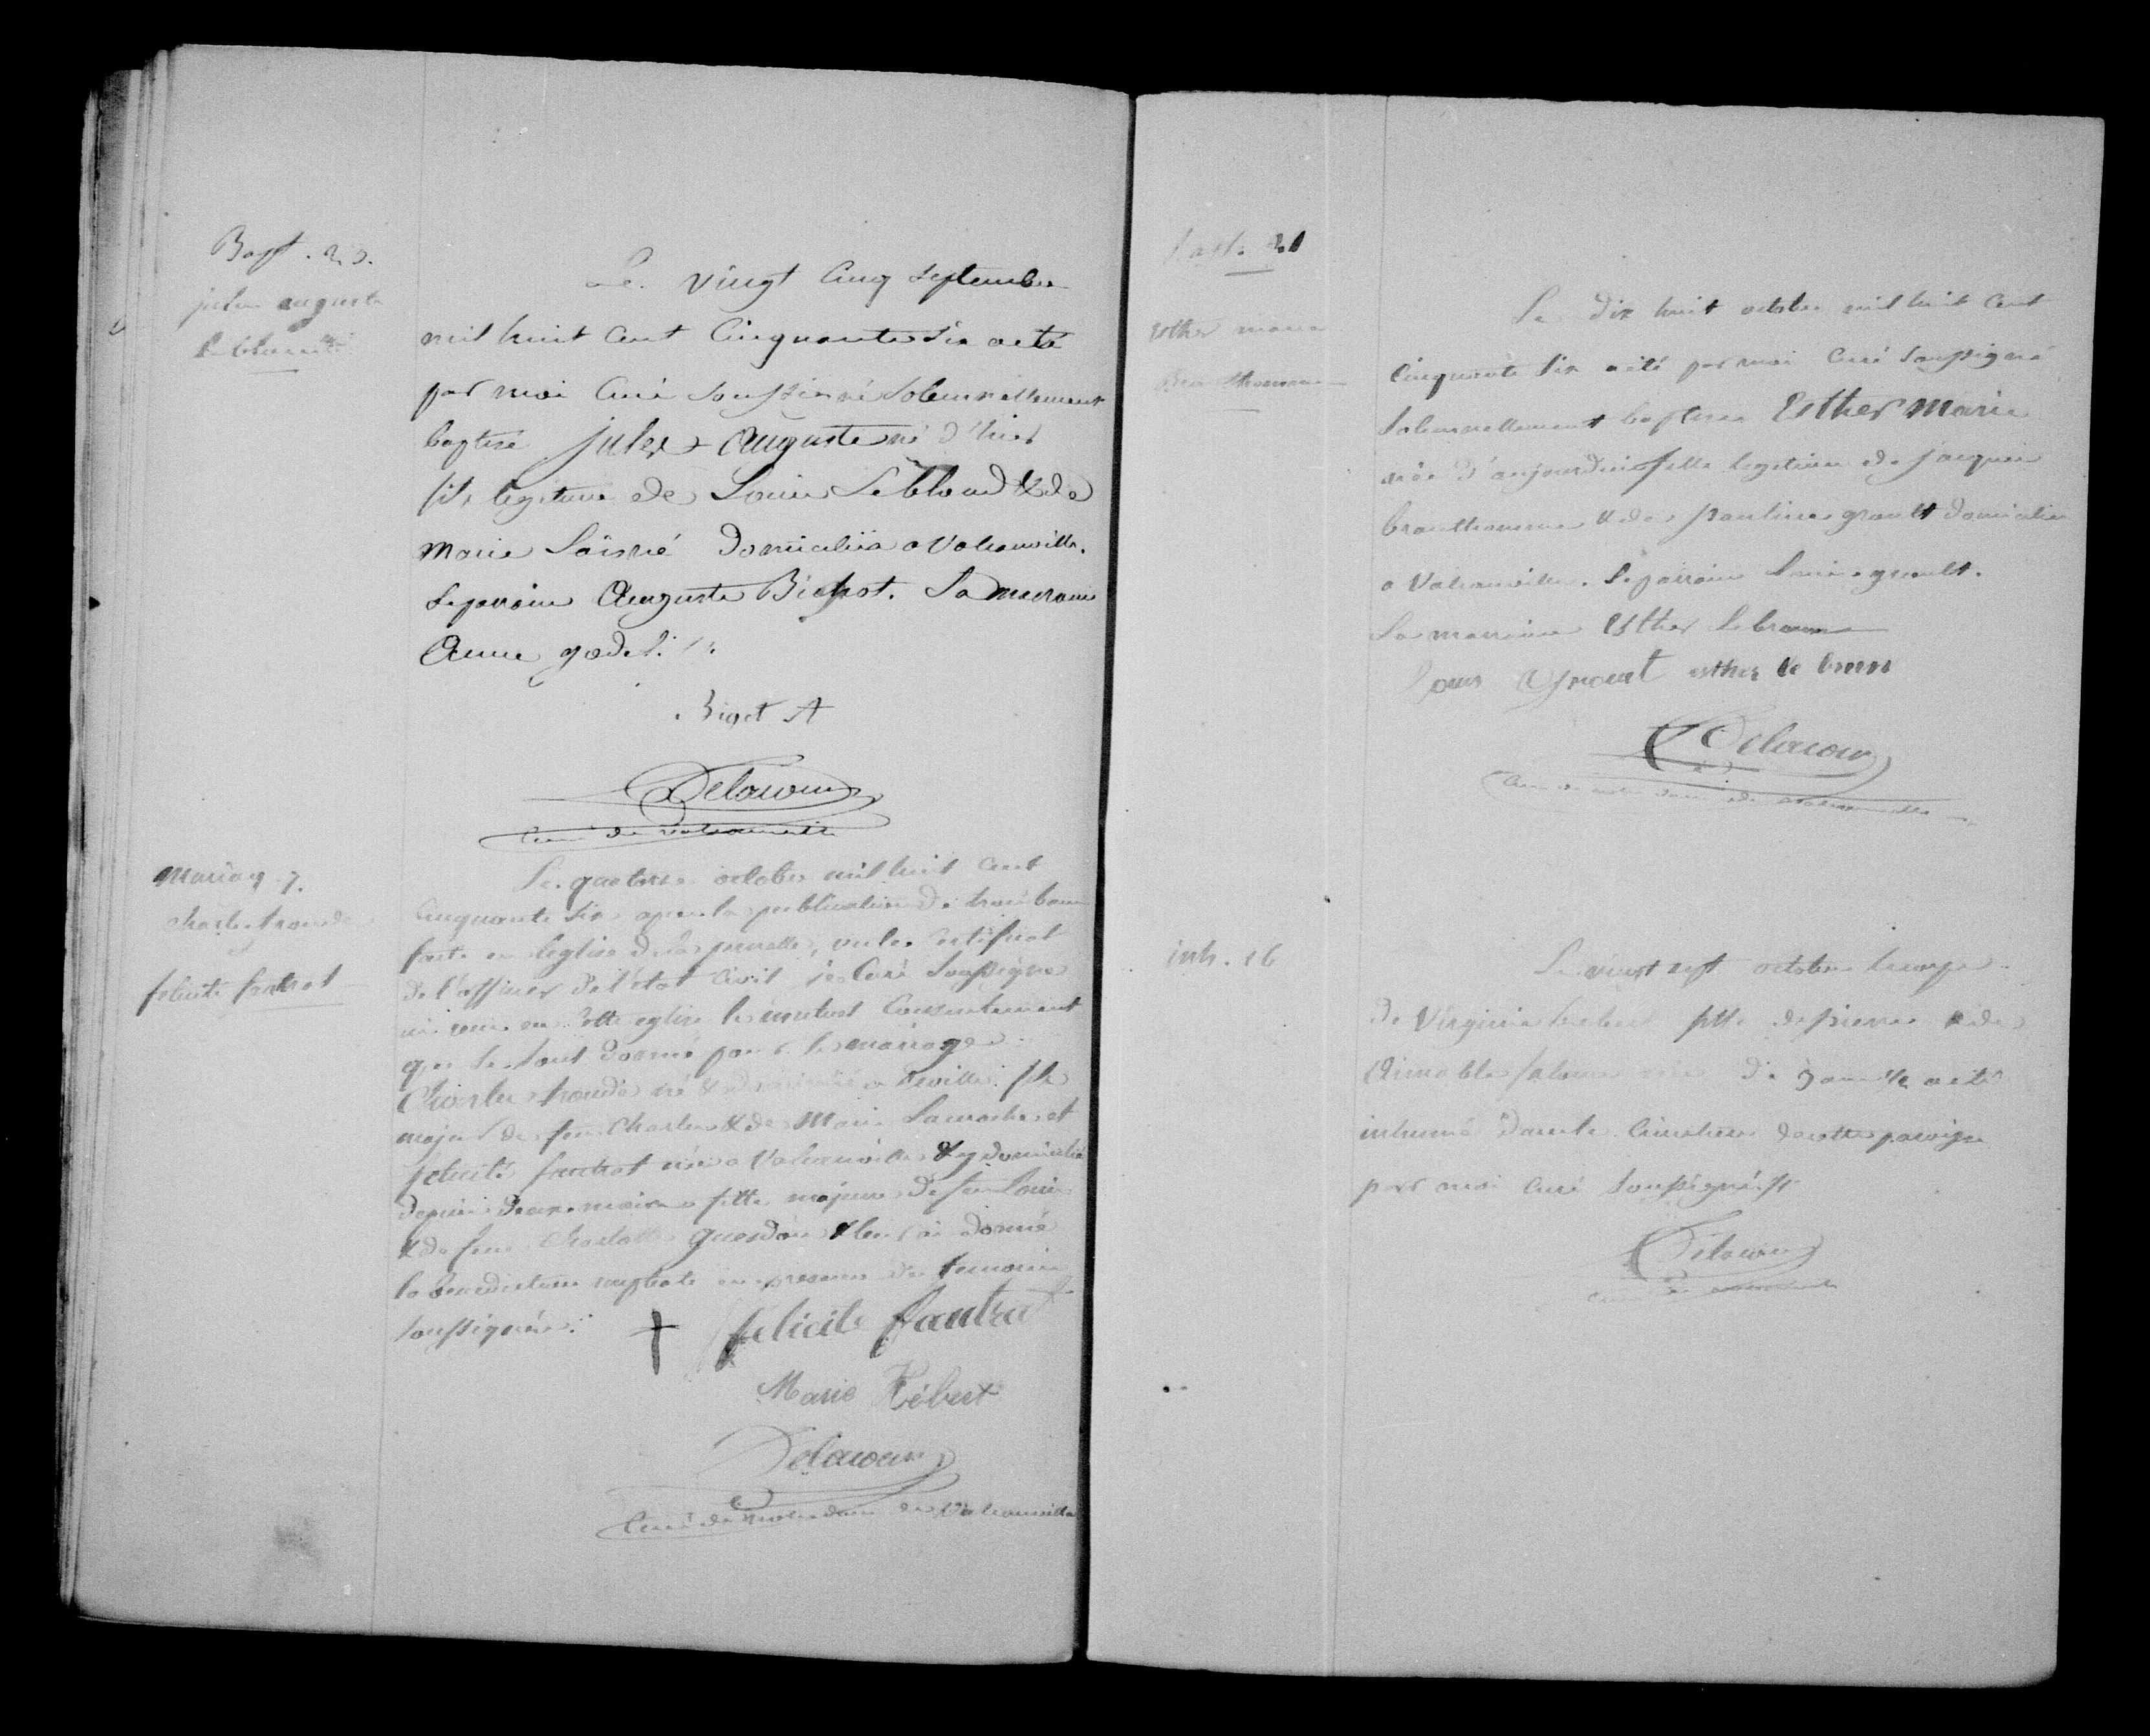 Bapt. 20.
jules auguste
Le vingt cinq septembre
mil huit cent cinquante six a eté
par moi curé soussigné solemnellement
baptisé jules auguste né d'hier
fils legitime de Louis Leblond & de
marie Laisné domiciliés a Valcanville.
Le parrain Auguste Bigot. La marraine
Anne godel.
Bigot A
Delacour
Curé de Valcanville
Mariag 7.
felicité fautrat
Le quatorze octobre mil huit cent
cinquante six apres la publication de trois bans
faite en l'eglise de la pernelle, vu le certificat
de l'officier de l'état civil je Curé soussigné
ai recu en cette eglise le mutuel consentement
que se sont donné pour le mariage
Charles né & domicilié a fils
majeur de feu Charles & de Marie et
felicité fautrat née a Valcanville & y domiciliée
depuis mois fille majeure de feu Louis
& de feue Charlotte & leur ai donné
la benediction nuptiale en presence des temoins
soussignés.
† felicite fautrat
Marie Hébert
Delacour
Curé de notre dame de Valcanville
Bapt. 21
Esther marie
Le dix huit octobre mil huit cent
cinquante six a eté par moi Curé soussigné
solemnellement baptisée Esther Marie
née d'aujourdhui fille legitime de jacques
& de pauline domiciliés
a Valcanville. Le parrain Louis
La marraine Esther Lebrun
esther le brun
Delacour
Curé de notre dame de Valcanville
inh. 16
Le vingt sept octobre le corps
de Virginie fille de pierre & de
Aimable a eté
inhumé dans le cimetiere de cette paroisse
par moi curé soussigné
Delacour